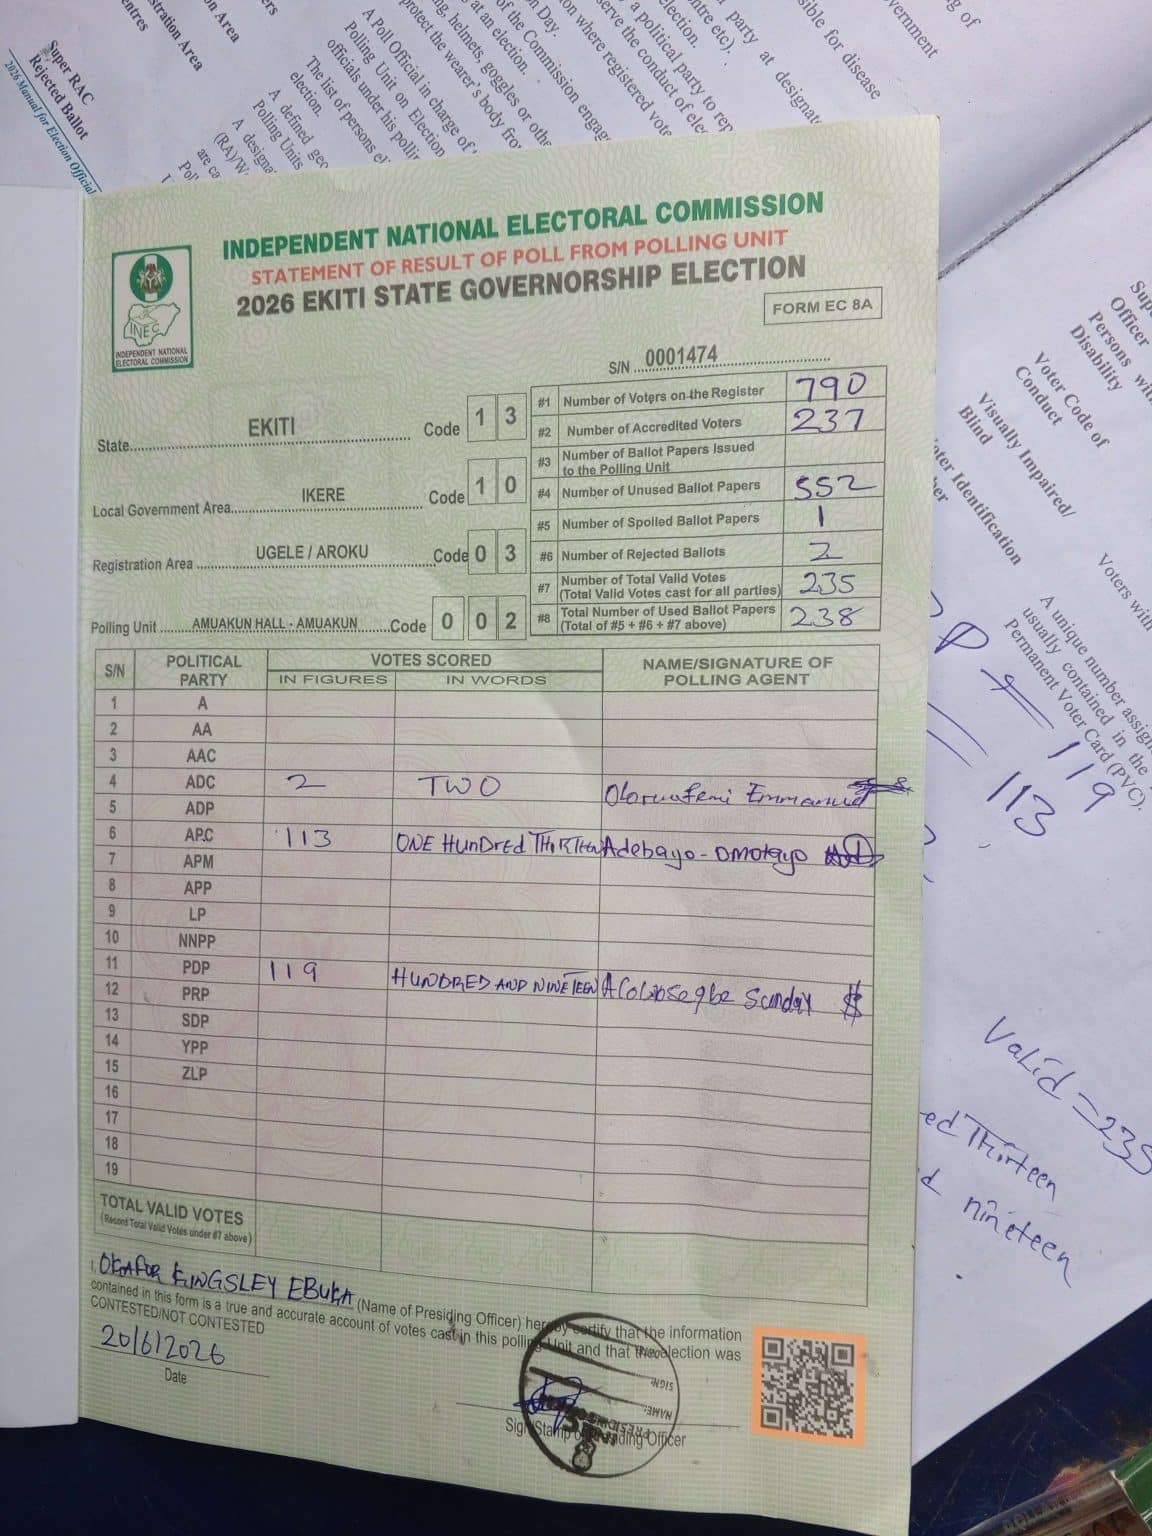 INDEPENDENT NATIONAL ELECTORAL COMMISSION
STATEMENT OF RESULT OF POLL FROM POLLING UNIT
2026 EKITI STATE GOVERNORSHIP ELECTION
FORM EC 8A
INEC
INDEPENDENT NATIONAL
ELECTORAL COMMISSION
S/N 0001474
State EKITI Code 1 3
Local Government Area IKERE Code 1 0
Registration Area UGELE / AROKU Code 0 3
Polling Unit AMUAKUN HALL - AMUAKUN Code 0 0 2
#1 Number of Voters on the Register 790
#2 Number of Accredited Voters 237
#3 Number of Ballot Papers Issued to the Polling Unit
#4 Number of Unused Ballot Papers 552
#5 Number of Spoiled Ballot Papers 1
#6 Number of Rejected Ballots 2
#7 Number of Total Valid Votes (Total Valid Votes cast for all parties) 235
#8 Total Number of Used Ballot Papers (Total of #5 + #6 + #7 above) 238
S/N POLITICAL PARTY VOTES SCORED NAME/SIGNATURE OF POLLING AGENT
IN FIGURES IN WORDS
1 A
2 AA
3 AAC
4 ADC 2 TWO Olorunfemi Emmanuel
5 ADP
6 APC 113 ONE HUNDRED THIRTEEN Adebayo - Omotayo
7 APM
8 APP
9 LP
10 NNPP
11 PDP 119 HUNDRED AND NINETEEN Sunday
12 PRP
13 SDP
14 YPP
15 ZLP
16
17
18
19
TOTAL VALID VOTES
(Record Total Valid Votes under #7 above)
I, OKAFOR KINGSLEY EBUKA (Name of Presiding Officer) hereby certify that the information
contained in this form is a true and accurate account of votes cast in this polling Unit and that the election was
CONTESTED/NOT CONTESTED
20/6/2026
Date
Sign/Stamp of Presiding Officer
SIGN:
NAME:
Super RAC
Rejected Ballot
2026 Manual for Election Official
A Poll Official in charge of
Polling Unit on Election
officials under his
The list of persons
election.
A defined
Polling Units
Officer
Persons
Disability
Voter Code of
Conduct
Visually Impaired/
Blind
Identification
Voters with
A unique number
usually contained in the
Permanent Voter Card (PVC).
119
113
Valid = 235
Thirteen
nineteen